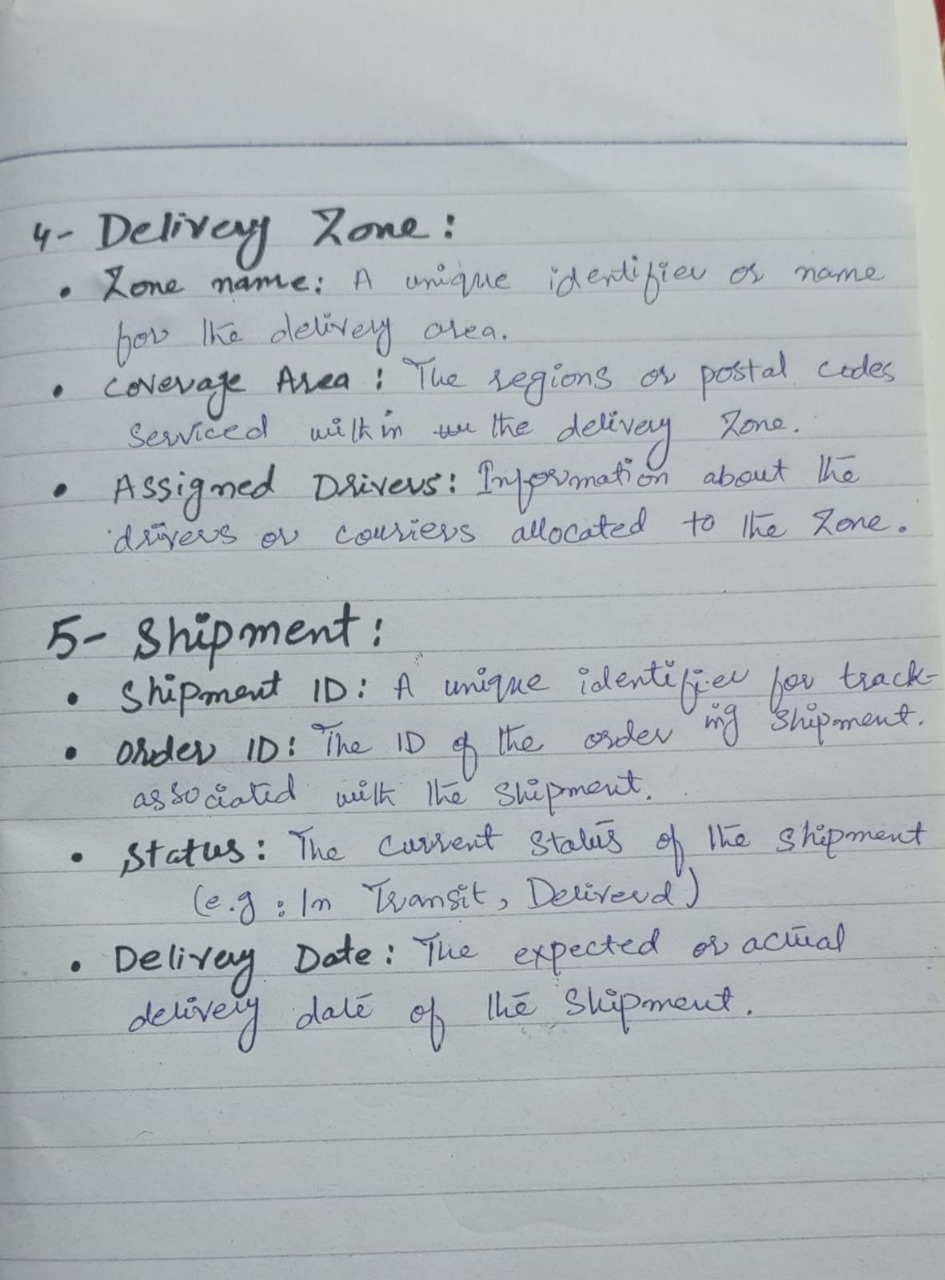 4- Delivery Zone:
• Zone name: A unique identifier or name
for the delivery area.
• Coverage Area: The regions or postal codes
serviced within the delivery Zone.
• Assigned Drivers: Information about the
drivers or couriers allocated to the Zone.
5- Shipment:
• Shipment ID: A unique identifier for track-
ing Shipment.
• Order ID: The ID of the order
associated with the Shipment.
• Status: The current Status of the Shipment
(e.g: In Transit, Deliverd)
• Delivery Date: The expected or actual
delivery date of the Shipment.